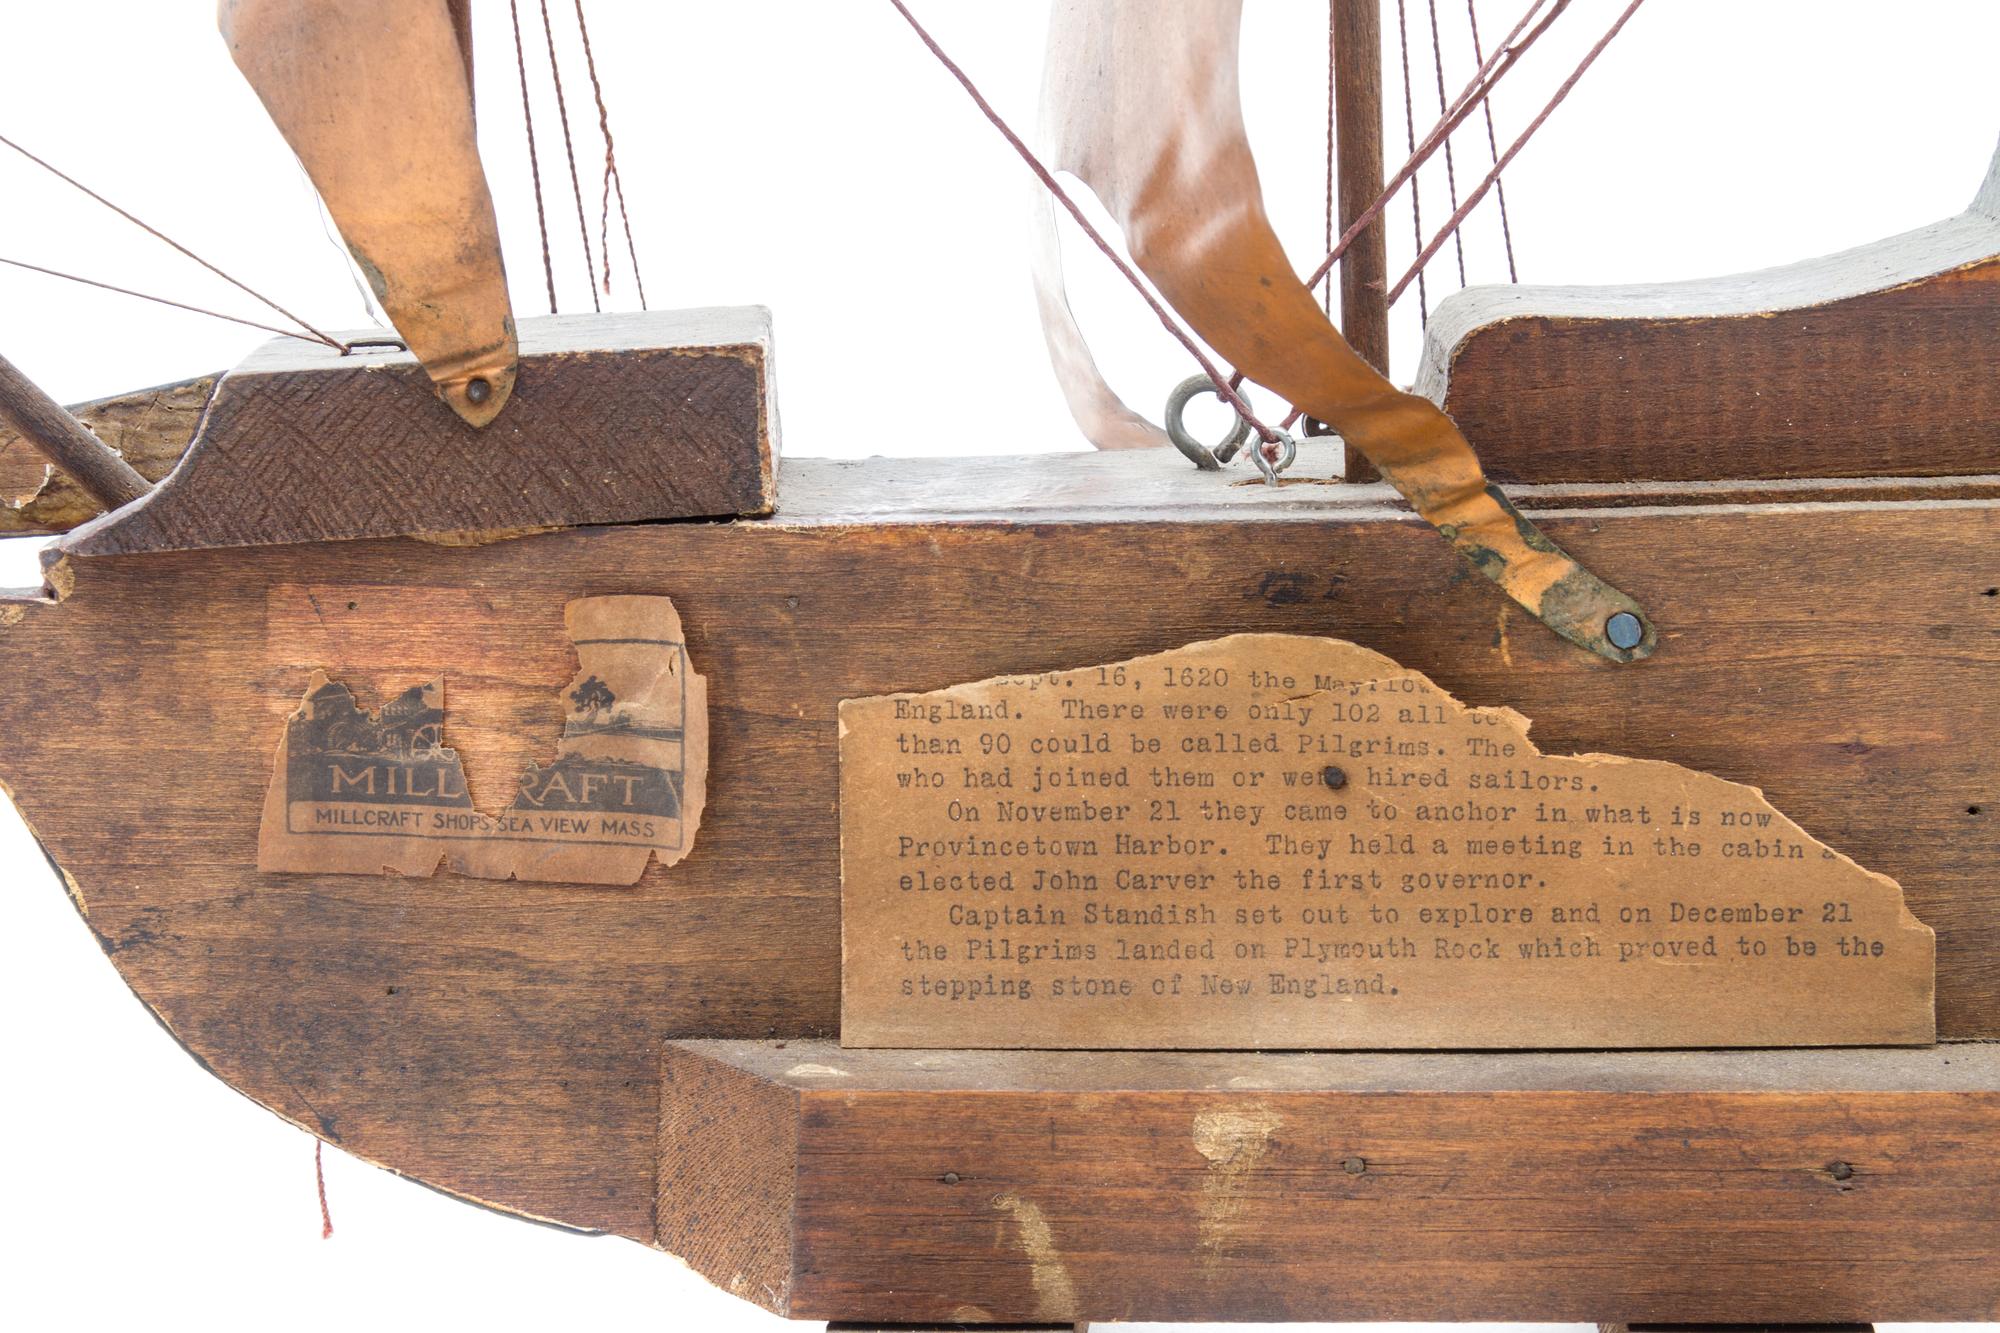 MILLCRAFT
MILLCRAFT SHOPS SEA VIEW MASS
Sept. 16, 1620 the Mayflow
England. There were only 102 all to
than 90 could be called Pilgrims. The
who had joined them or were hired sailors.
On November 21 they came to anchor in what is now
Provincetown Harbor. They held a meeting in the cabin a
elected John Carver the first governor.
Captain Standish set out to explore and on December 21
the Pilgrims landed on Plymouth Rock which proved to be the
stepping stone of New England.